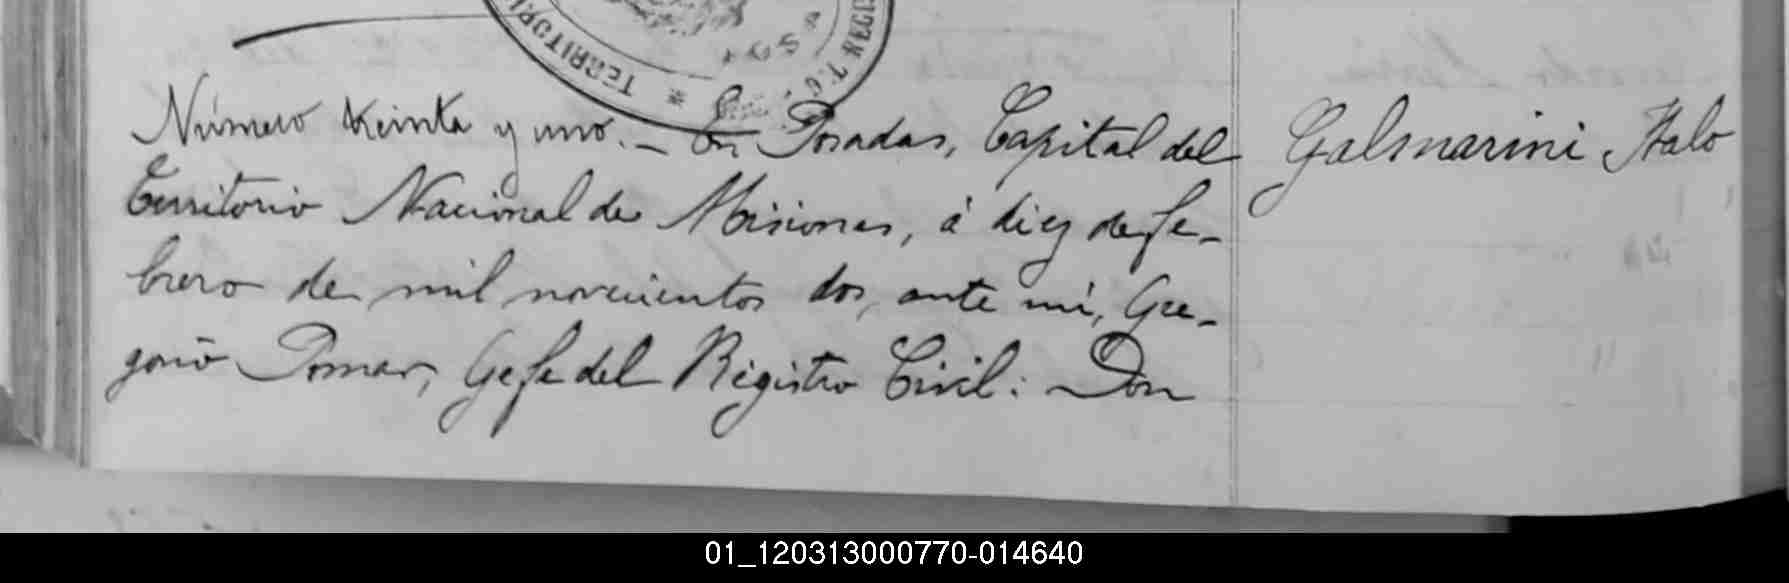 TERRITORI
T. C. REGIS
Número treinta y uno. — En Posadas, Capital del
Territorio Nacional de Misiones, á diez de fe-
brero de mil novecientos dos, ante mí, Gre-
gorio Pomar, Gefe del Registro Civil: Don
Galmarini Italo
01_120313000770-014640